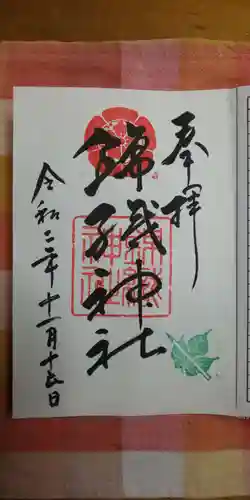 奉拝
錦織神社
錦織
神社
令和二年十一月十五日